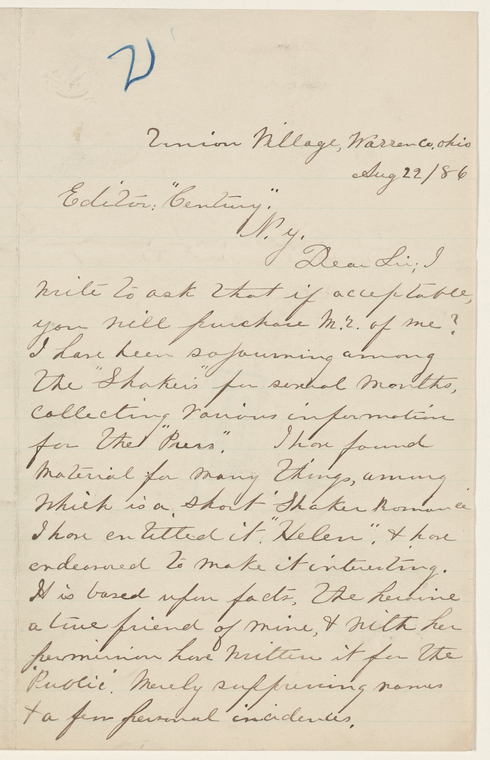 2
Union Village, Warren Co, Ohio
Aug 22/86
Editor: "Century".
N. Y.
Dear Sir; I
write to ask that if acceptable,
you will purchase M.S. of me?
I have been sojourning among
the "Shakers" for several months,
collecting various information
for the "Press". I have found
material for many things, among
which is a short "Shaker Romance
I have entitled it "Helen", & have
endeavored to make it interesting.
It is based upon facts, the heroine
a true friend of mine, & with her
permission have written it for the
'Public'. Merely suppressing names
& a few personal incidents.